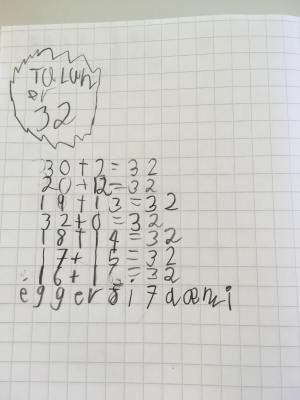 TALAN
er
32
30+2=32
20+12=32
19+13=32
32+0=32
18+14=32
17+15=32
=32
ég gerði 7 dæmi